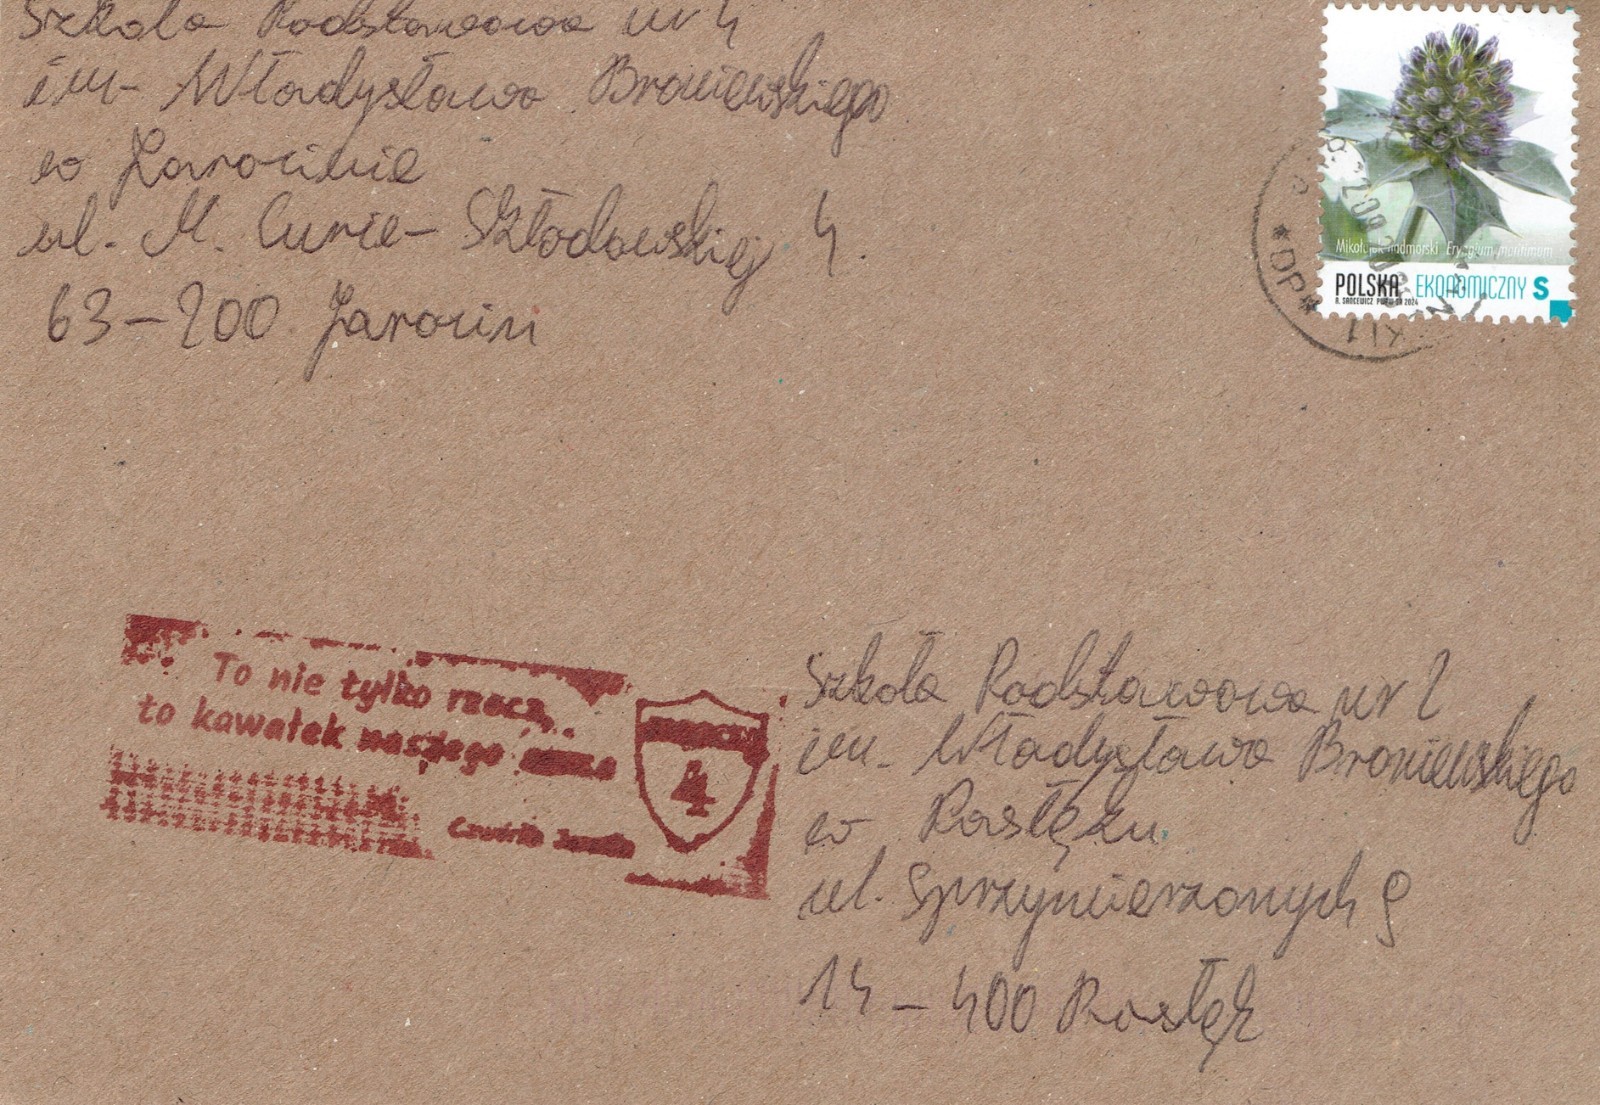 Szkoła Podstawowa nr 4
im. Władysława Broniewskiego
w Jarocinie
ul. M. Curie-Skłodowskiej 4
63-200 Jarocin
Mikołajek nadmorski Eryngium maritimum
POLSKA EKONOMICZNY S
A. SANCEWICZ PWPW SA 2024
*DP*
To nie tylko rzecz,
to kawałek naszego
4
Szkoła Podstawowa nr 2
im. Władysława Broniewskiego
w Pasłęku
ul. Sprzymierzonych 9
14-400 Pasłęk